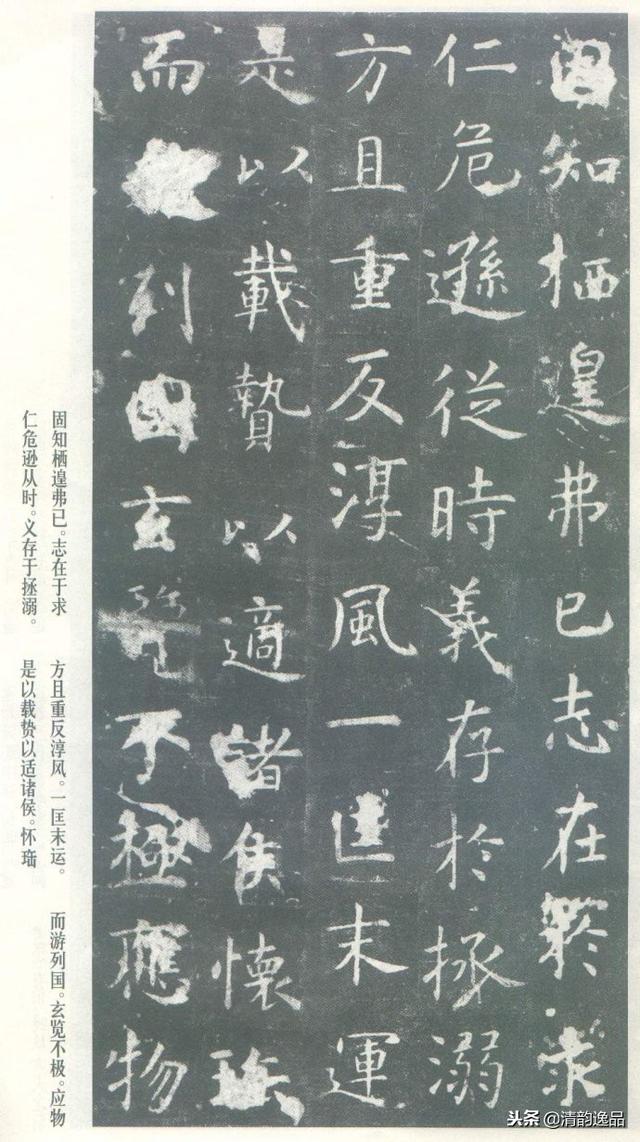 固知栖遑弗已志在於求
仁危遜從時義存於拯溺
方且重反淳風一匡末運
是以載贄以適諸侯懷珤
而遊列國玄覽不極應物
固知栖遑弗已。志在于求
仁危逊从时。义存于拯溺。
方且重反淳风。一匡末运。
是以载贽以适诸侯。怀珤
而游列国。玄览不极。应物
头条 @清韵逸品